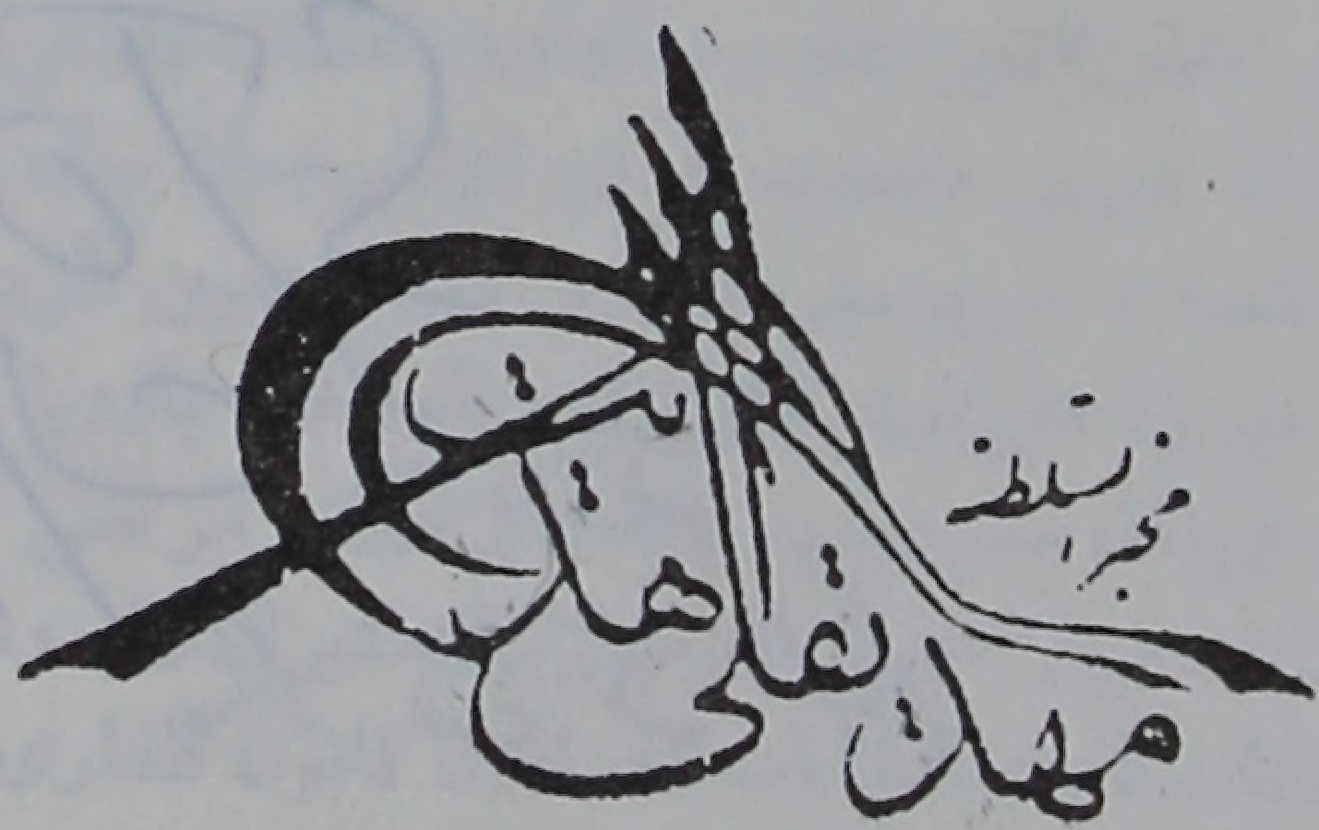 مخبرالسلطنه
مهدیقلی هدایت